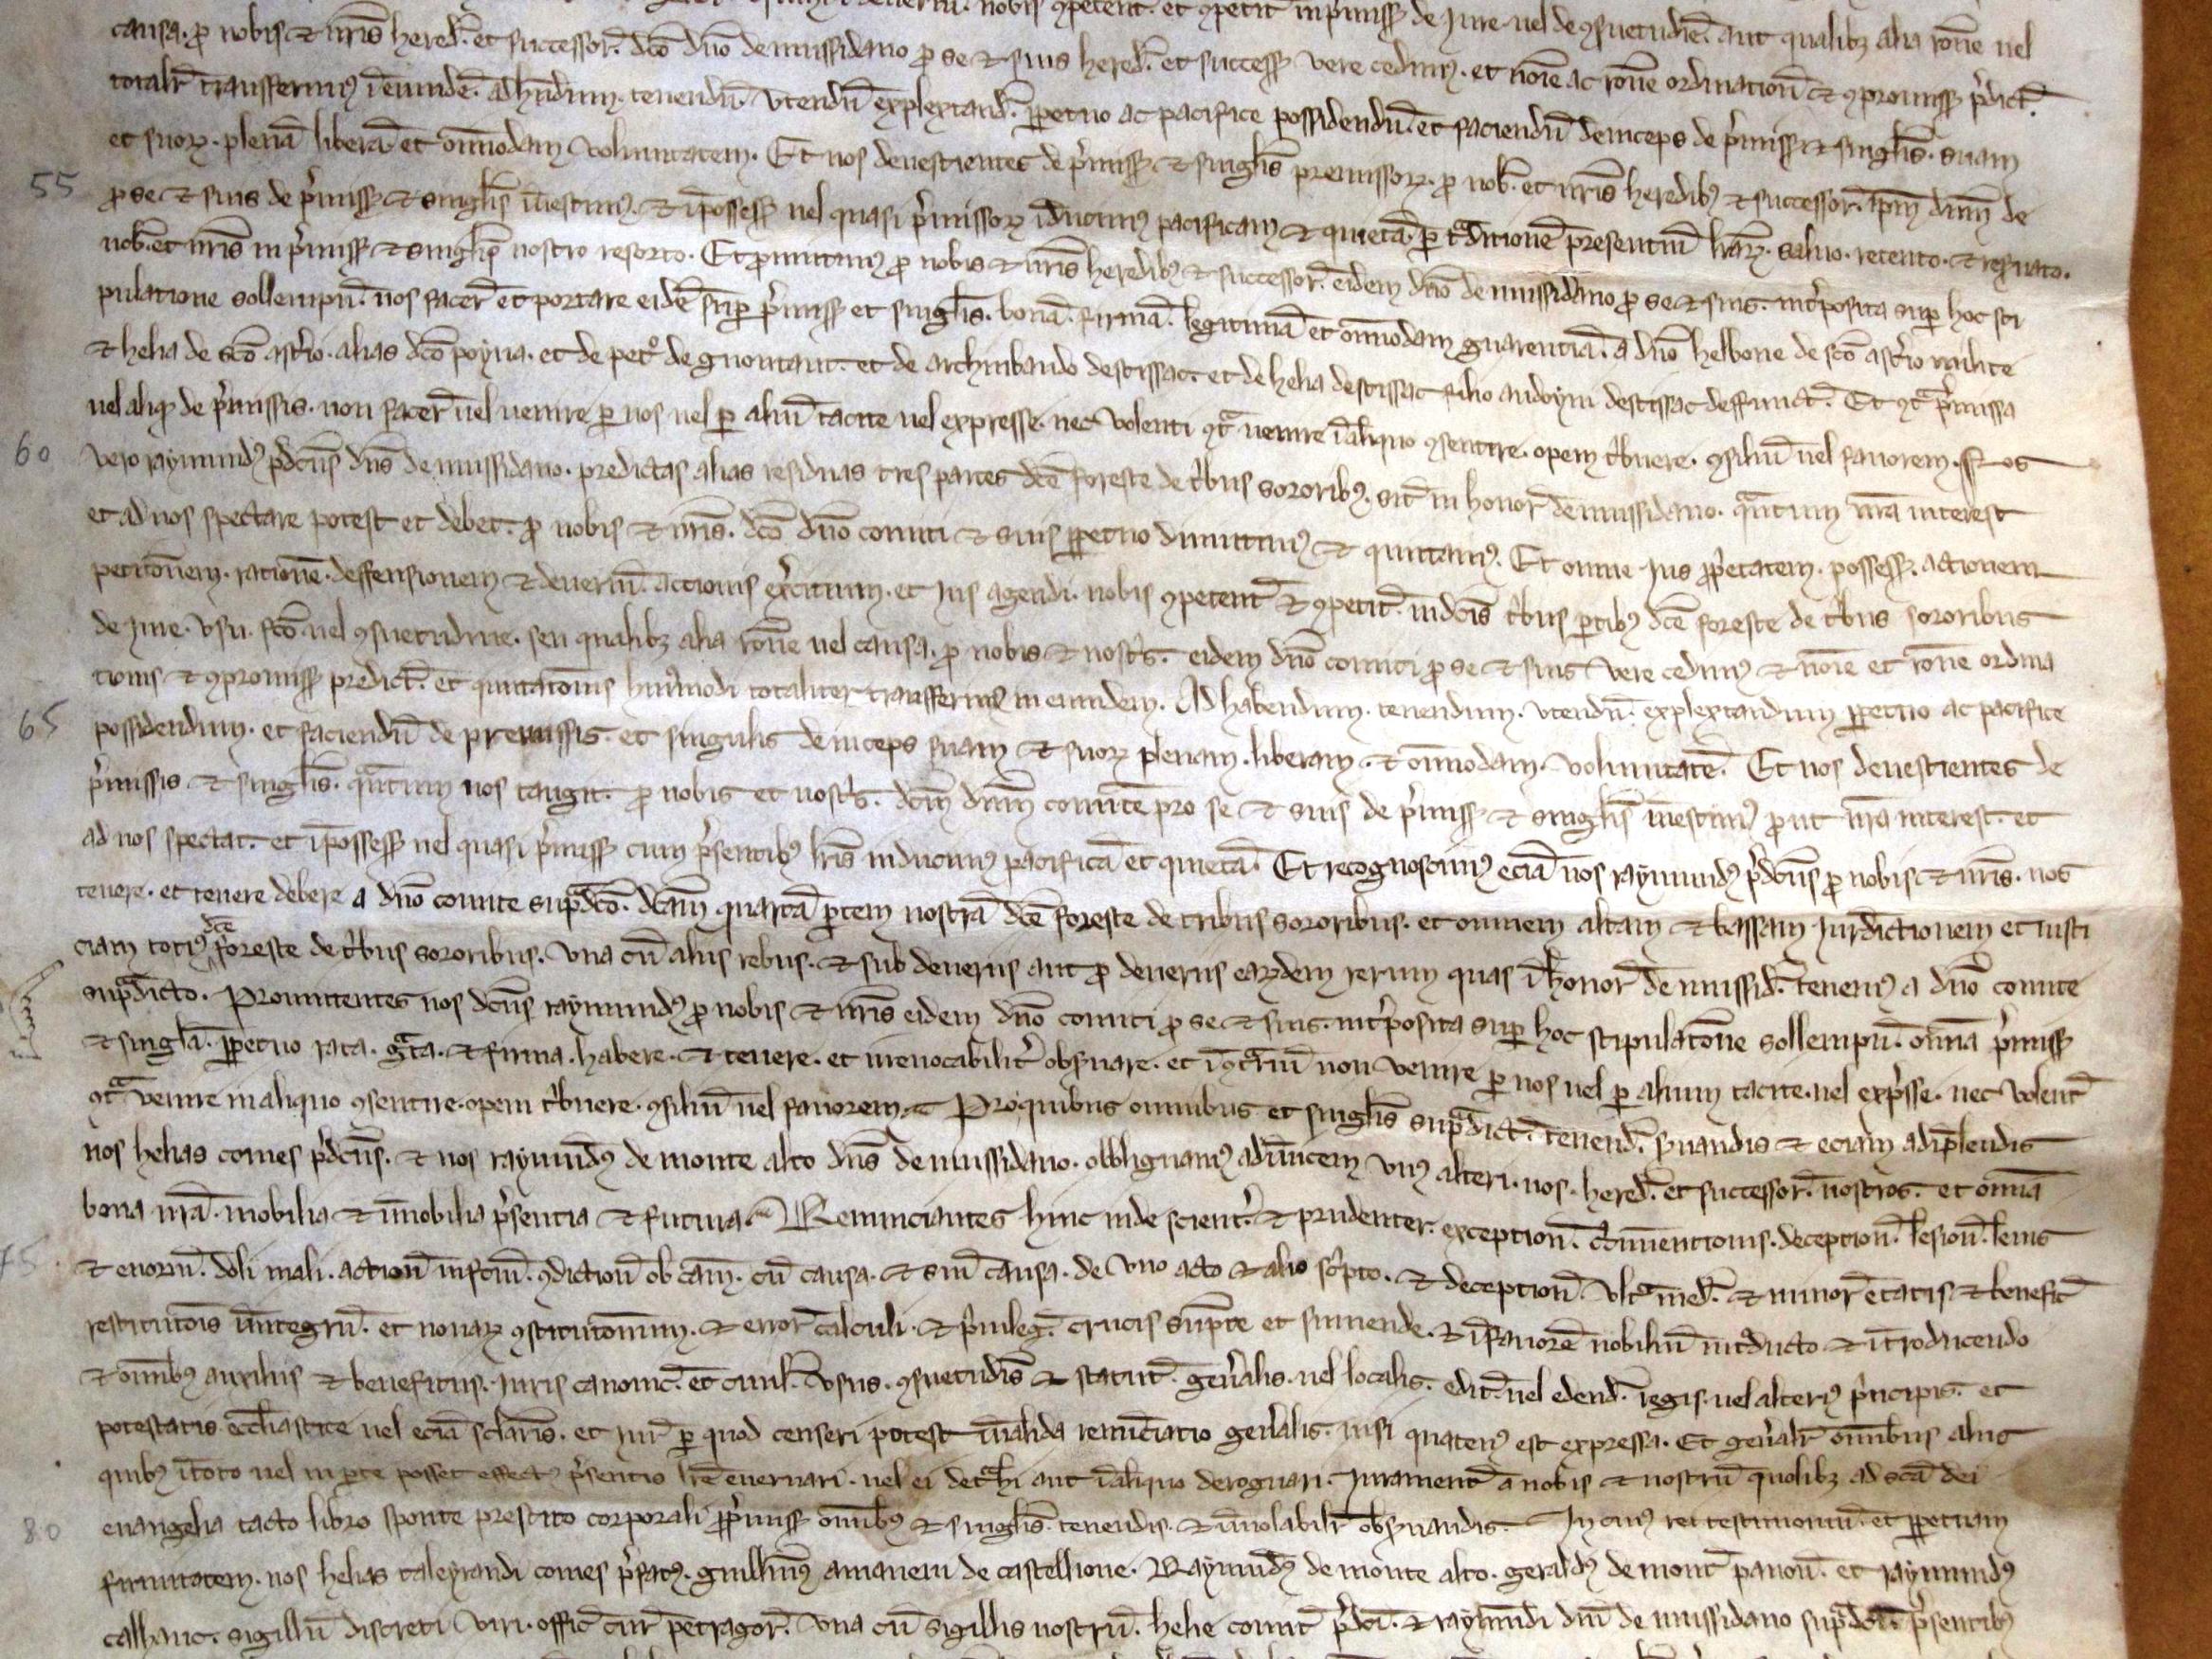 nobis competent et competit in p̄miss de Iure vel de ꝯsuetudīe aut qualibꝫ alia rōne vel
causa. ꝓ nobis et nr̄is hered. et successor. dc̄o dn̄o de muissidano ꝓ se et suis hered. et success vere cedimꝰ. et noīe ac rōne ordination et ꝯpromiss p̄dict
totalr̄ transferimꝰ ī eundē. ad hn̄dum. tenendū. vtendū explextand. ꝑpetuo ac pacifice possidendū. et faciendū deinceps de p̄miss et singlis. suam
55 et suoꝝ. plenā liberā et om̄imodam voluntatem. Et nos devestientes de p̄miss. et singlis premissoꝝ. ꝓ nob. et nr̄is heredibꝰ et successor. ip̄m dn̄m de
ꝓ se et suis de p̄miss et singlis īvestimꝰ. et ī possess vel quasi p̄missoꝝ īducimꝰ pacificam et quietā. ꝑ tᵃditionē presentiū lr̄aꝝ. salvo. retento. et reservato.
nob. et nr̄is in p̄miss et singlis nostro resorto. Et promittimꝰ ꝓ nobis et nr̄is heredibꝰ et successor. eidem dn̄o de muissidano ꝓ se et suis. int̄posita suꝑ hoc sti
pulatione sollempn̄. nos facer̄ et portare eidē suꝑ p̄miss et singlis. bonā. firmā. legitimā et om̄imodam guarentiā. a dn̄o helbone de sc̄o ast̄io milite
et helia de sc̄o ast̄io. alias dc̄o poyna. et de pet̊ de gnontaut. et de archmbaudo destissac. et de helia destissac filio audoyni destissac deffunct̄. Et ꝯtᵃ p̄missa
60 vel aliqd̄ de p̄missis. non facer̄ vel venire ꝑ nos vel ꝑ aliū tacite vel expresse. nec volenti ꝯtᵃ venire ī aliquo ꝯsentire. opem t̄buere. ꝯsiliū vel favorem. Nos
vero raymundꝰ p̄dictꝰ dn̄s de muissidano. predictas alias residuas tres partes dc̄e foreste de t̄bus sororibꝰ. sit̄ in honor̄ de muissidano. qᵃntum nr̄a interest
et ad nos spectare potest et debet. ꝓ nobis et nr̄is. dc̄o dn̄o comiti et suis ꝑpetuo dimittimꝰ et quittamꝰ. Et omne Ius ꝓp̄etatem. possess. actionem
petitōnem. rationē. deffensionem et deveriū. actionis ex̄citium. et Ius agendi. nobis ꝯpetent̄ et ꝯpetit̄. in dc̄is t̄bus ꝑtibꝰ dc̄e foreste de t̄bus sororibus
de Iure. vsu. fc̄o vel ꝯsuetudine. seu qualibꝫ alia rōne vel causa. ꝓ nobis et nost̄s. eidem dn̄o comiti ꝓ se et suis vere cedimꝰ et noīe et rōne ordina
65 tionis et ꝯpromiss predict̄. et quittatōnis huiꝰmodi totaliter transferimꝰ in eundem. Ad habendum. tenendum. vtendū. explextandum ꝑpetuo ac pacifice
possidendum. et faciendū de premissis. et singulis deinceps suam et suoꝝ plenam. liberam. et om̄imodam. voluntatē. Et nos devestientes de
p̄missis et singlis. qᵃntum nos tangit. ꝓ nobis et nost̄s. dc̄m dn̄m comitē pro se et suis de p̄miss et singlis īvestimꝰ prout nr̄a interest. et
ad nos spectat. et ī possess vel quasi p̄miss cum p̄sentibꝰ lr̄is inducimꝰ pacificā et quietā. Et recognoscimꝰ eciā nos raymundꝰ p̄dc̄us ꝓ nobis et nr̄is. nos
tenere. et tenere debere a dn̄o comite supᵃdc̄o. dc̄am quartā ꝑtem nostrā dc̄e foreste de tribus sororibus. et omnem altam et bassam Iurdictionem et iusti
ciam totiꝰ dc̄e foreste de t̄bus sororibus. vna cū aliis rebus. et sub deveriis aut ꝓ deveriis eaꝝdem rerum quas ī honor̄ de muissid. tenemꝰ a dn̄o comite
supᵃdicto. Promittentes nos dc̄us raymundꝰ ꝓ nobis et nr̄is eidem dn̄o comiti ꝓ se et suis. int̄posita suꝑ hoc stipulatōne sollempn̄. om̄ia p̄miss
et singla. ꝑpetuo rata. gᵃta. et firma. habere. et tenere. et irrevocabilit̄ observare. et ī ꝯtᵃriū non venire ꝑ nos vel ꝑ alium tacite. vel exp̄sse. nec volent̄
ꝯtᵃ venire in aliquo ꝯsentire. opem t̄buere. ꝯsiliū vel favorem. Pro quibus omnibus et singlis supᵃdict̄. tenend. servandis et eciam adīplendis
nos helias comes p̄dc̄us. et nos raymūdꝰ de monte alto dn̄s de muissidano. obligamꝰ adīvicem vnꝰ alteri. nos. hered. et successor. nostros. et om̄ia
75 bona nr̄a. mobilia et īmobilia p̄sentia et futura. Renunciantes hinc inde scient̄. et prudenter. exception. cōventionis. deception. lesion. levis
et enorm̄. doli mali. action in fc̄m. ꝯdiction ob cām. cū causa. et sn̄ causa. de vno acto et alio sc̄pto. et deception vltᵃ med. et minor̄ etatis et benefic̄
restitutōis īntegrū. et novaꝝ ꝯstitutōnum. et error̄ calculi. et p̄vileg. crucis sūpte et sumende. et ī favorē nobiliū int̊ducto et ītroducendo
et om̄ibꝰ auxiliis et beneficiis. Iuris canonic̄. et civil. vsus. ꝯsuetudīs et statut̄. gen̄alis. vel localis. edit̄ vel edend. regis. vel alteriꝰ p̄ncipis. et
potestatis ecc̄liastice vel eciā sc̄laris. et Iur̄ ꝑ quod censeri potest īvalida renūciatio gen̄alis. nisi quatenꝰ est expressa. Et gen̄alr̄ omībus aliis
quibꝰ ī toto vel in ꝑte posset effectꝰ p̄sentis lr̄e enervari. vel ei detᵃhi aut ī aliquo deroguari. Iurament̄ a nobis et nostrū quolibꝫ ad sc̄a dei
80 evangelia tacto libro sponte prestito corporali ꝓ p̄miss om̄ibꝰ et singlis. tenendis. et īviolabilr̄ observandis. In cuiꝰ rei testimoniū. et ꝑpetuam
firmitatem. nos helias taleyrandi comes p̄fatꝰ. guillmꝰ amanevi de castellione. Raymūdꝰ de monte alto. geraldꝰ de mont̄ panon̄. et raymundꝰ
calhanc. sigillū discreti viri. offic̄ cur̄ petragor̄. vna cū sigillis nostrū. helie comit̄ p̄dc̄i. et raymūdi dn̄i de muissidano supᵃdc̄i. p̄sentibꝰ